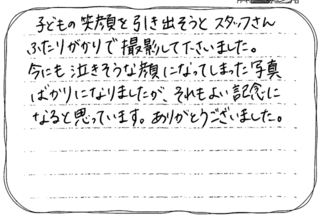 子どもの笑顔を引き出そうと スタッフさん
ふたりがかりで撮影して下さいました。
今にも泣きそうな顔になってしまった写真
ばかりになりましたが、それもよい記念に
なると思っています。ありがとうございました。